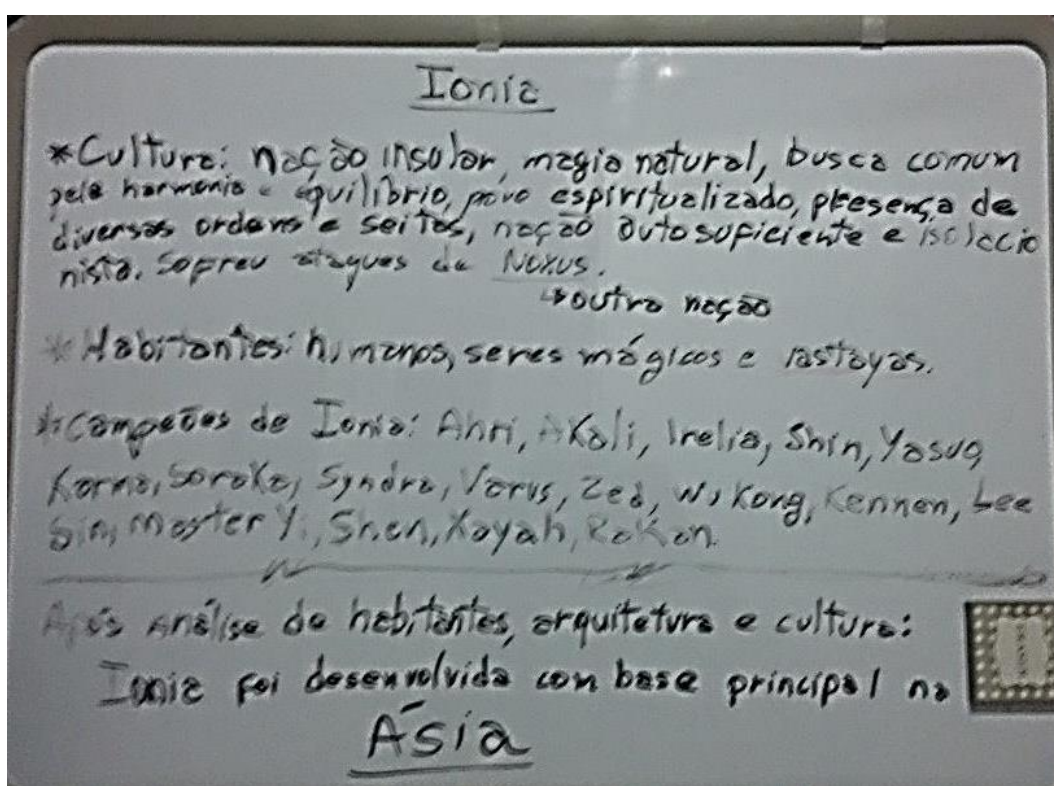 Ionia
*Cultura: nação insular, magia natural, busca comum
pela harmonia e equilíbrio, povo espiritualizado, presença de
diversas ordens e seitas, nação autosuficiente e isolacio
nista. Sofreu ataques de Noxus.
↳outra nação
*Habitantes: humanos, seres mágicos e vastayas.
*Campeões de Ionia: Ahri, Akali, Irelia, Shin, Yasuo,
Karma, Soraka, Syndra, Varus, Zed, Wukong, Kennen, Lee
Sin, Master Yi, Shen, Xayah, Rakan.
Após análise de habitantes, arquitetura e cultura:
Ionia foi desenvolvida com base principal na
Ásia